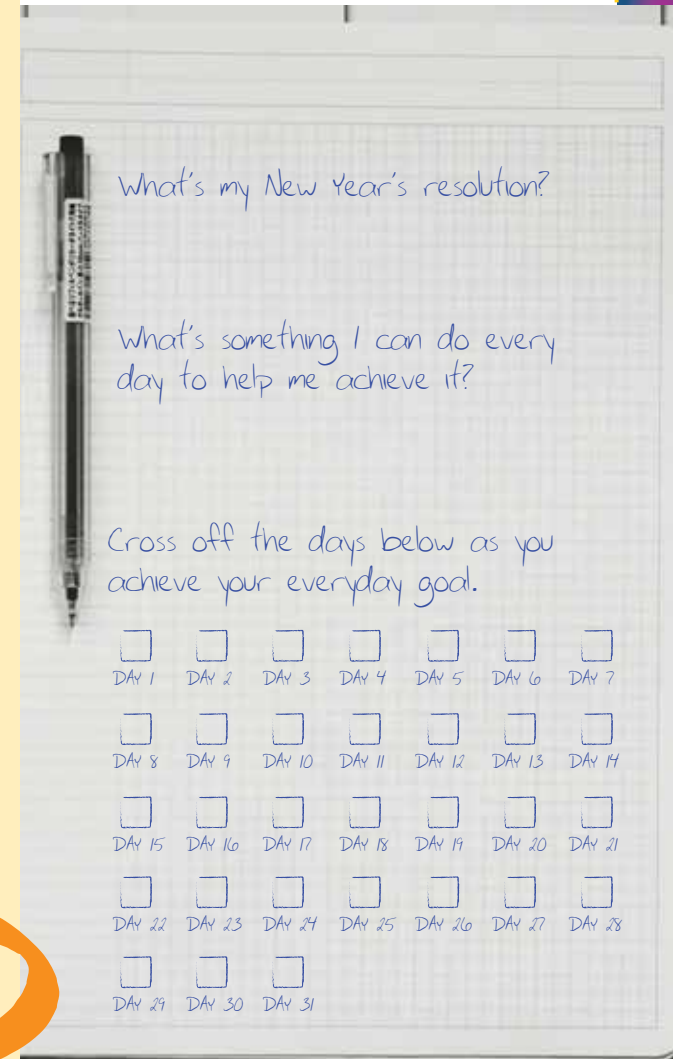 What's my New Year's resolution?
What's something I can do every
day to help me achieve it?
Cross off the days below as you
achieve your everyday goal.
DAY 1 DAY 2 DAY 3 DAY 4 DAY 5 DAY 6 DAY 7
DAY 8 DAY 9 DAY 10 DAY 11 DAY 12 DAY 13 DAY 14
DAY 15 DAY 16 DAY 17 DAY 18 DAY 19 DAY 20 DAY 21
DAY 22 DAY 23 DAY 24 DAY 25 DAY 26 DAY 27 DAY 28
DAY 29 DAY 30 DAY 31